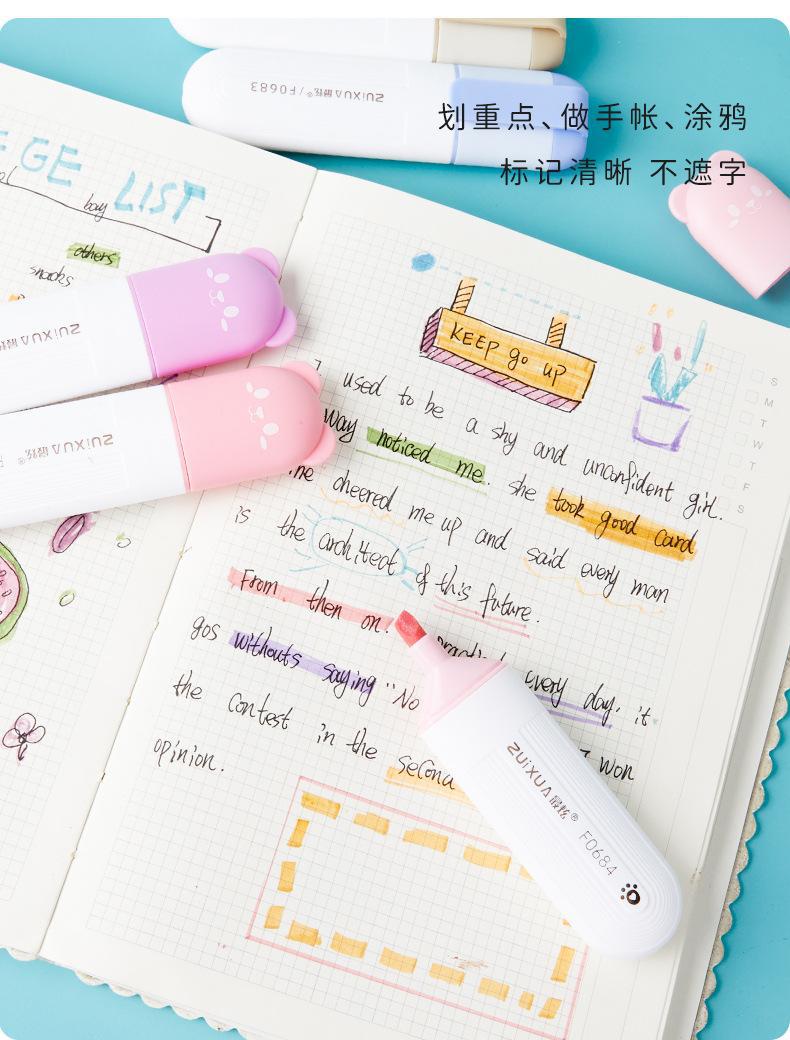 划重点、做手帐、涂鸦
标记清晰 不遮字
ZUiXUA最炫® / F0683
GE LIST
bay
others
snacks
ZUiXUA最炫
ZUiXUA最炫®
KEEP go up
S
M
T
W
T
F
S
I used to be a shy and unconfident girl.
Way noticed me. she took good card
me cheered me up and said every man
is the architect of this future.
From then on. every day. it
gos withouts saying "No
the contest in the second I won
opinion.
ZUiXUA最炫® F0684